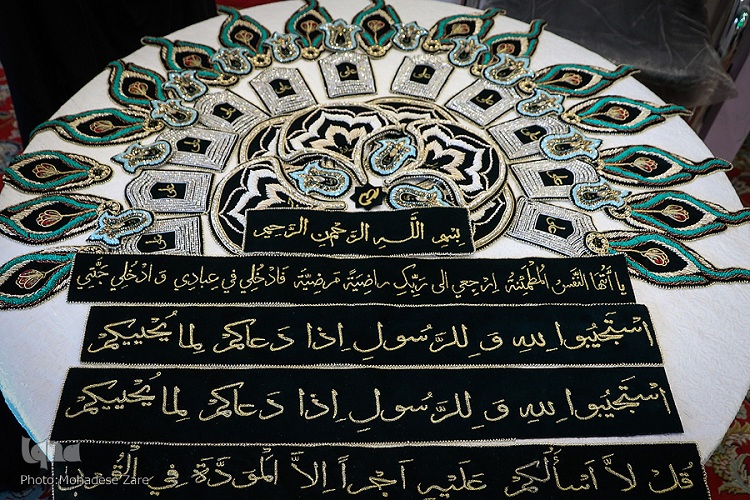 بسم اللـه الرَّحْمٰنِ الرَّحيم
يا أَيَّتُهَا النَّفْسُ الْمُطْمَئِنَّةُ اِرْجِعي الى رَبِّكِ راضِيَةً مَرْضِيَّةً فَادْخُلي في عِبادي وَ ادْخُلي جَنَّتي
اسْتَجيبُوا لِلهِ وَ لِلرَّسُولِ اِذا دَعاكُمْ لِما يُحْييكُمْ
اسْتَجيبُوا لِلهِ وَ لِلرَّسُولِ اِذا دَعاكُمْ لِما يُحْييكُمْ
قُلْ لاَّ اَسْأَلُكُمْ عَلَيْهِ اَجْراً اِلاَّ الْمَوَدَّةَ فِي الْقُرْبى
iqna
Photo:Mohadese Zare